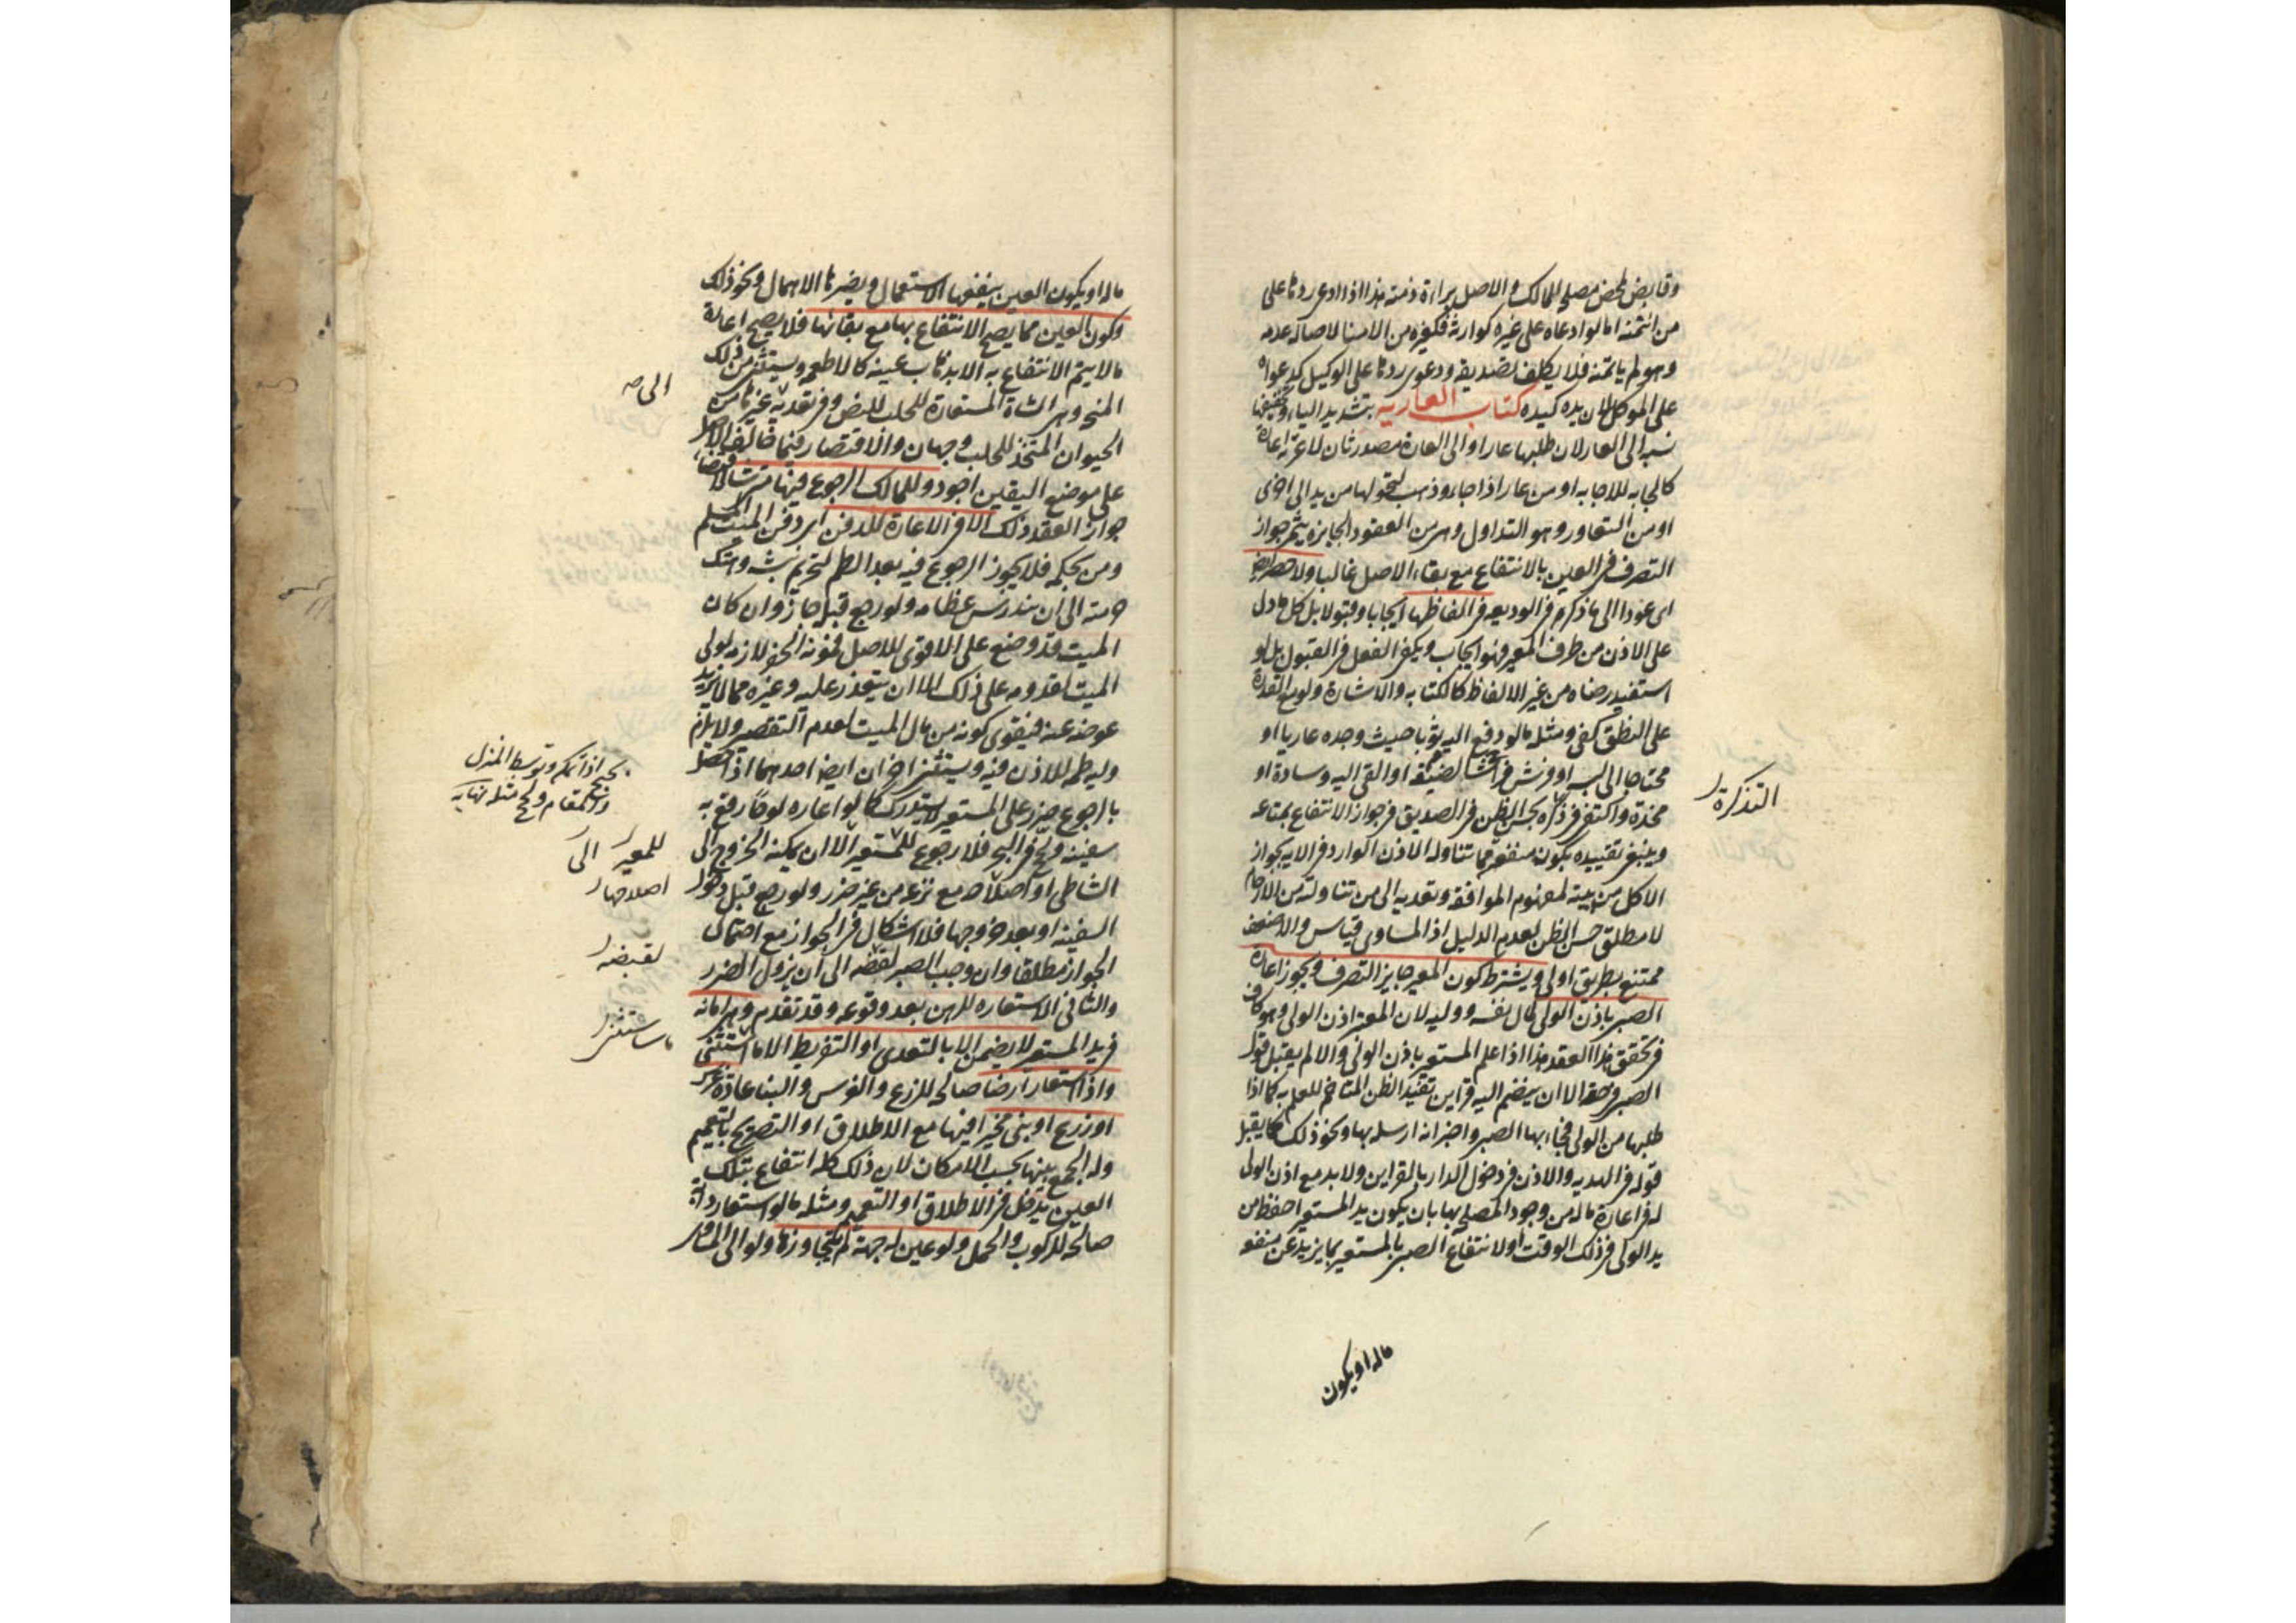 وقابض لمحض مصلحة المالك والاصل براءة ذمته هذا اذا ادعى ردها على
من ائتمنه اما لو ادعاه على غيره كوارثه فكغيره من الامنا لاصالة عدمه
وهو لم ياتمنه فلا يكلف تصديقه ودعوى ردها على الوكيل كدعواه
على الموكل لان يده كيده كتاب العاريه بتشديد الياء وتخفيفها
نسبة الى العار لان طلبها عار او الى العارة مصدر ثان لاعرته اعارة
كالجابه للاجابه او من عار اذا جاء وذهب لتحولها من يد الى اخرى
او من التعاور وهو التداول وهي من العقود الجايزه يثمر جواز
التصرف في العين بالانتفاع مع بقاء الاصل غالبا ولا حصر ايضا
اى عودا الى ما ذكر فى الوديعه فى الفاظها ايجابا وقبولا بل كل ما دل
على الاذن من طرف المعير فهو ايجاب ويكفى الفعل فى القبول بل لو
استفيد رضاه من غير الالفاظ كالكتابه والاشارة ولو مع القدرة
على النطق كفى ومثله ما لو دفع اليه ثوبا حيث وجده عاريا او
محتاجا الى لبسه او فرش فراشا لضيفه او القى اليه وسادة او
مخدة واكتفى فى ذكره بحسن الظن فى الصديق فى جواز الانتفاع بمتاعه
التذكرة
وينبغى تقييده بكون منفعته مما تتناوله الاذن الوارد فى الايه بجواز
الاكل من بيته لمفهوم الموافقه وتعديه الى من تناولته من الارحام
لا مطلق حسن الظن لعدم الدليل اذ المساوى قياس والاضعف
ممتنع بطريق اولى ويشترط كون المعير جايز التصرف ويجوز اعارة
الصبي باذن الولى لمال نفسه ووليه لان المعتبر اذن الولى وهو كاف
فى تحقق هذا العقد هذا اذا علم المستعير باذن الولى والا لم يقبل قول
الصبي فى حقه الا ان ينضم اليه قراين تفيد الظن المتاخم للعلم به كما اذا
طلبها من الولى فجاء بها الصبي واخبر انه ارسله بها ونحو ذلك كما يقبل
قوله فى الهديه والاذن فى دخول الدار بالقراين ولا بد مع اذن الولى
له فى اعارة ماله من وجود المصلحه بها بان يكون يد المستعير احفظ من
يد الولى فى ذلك الوقت او لانتفاع الصبي بالمستعير بما يزيد عن منفعه
ماله او يكون
ماله او يكون العين ينفعها الاستعمال ويضرها الاهمال ونحو ذلك
وكون العين مما يصح الانتفاع بها مع بقائها فلا يصح اعارة
ما لا يتم الانتفاع به الا بذهاب عينه كالاطعمه ويستثنى من ذلك
المنحه وهى الشاة المستعارة للحلب للنص وفى تعديه غيرها من
الى
الحيوان المتخذ للحلب وجهان والاقتصار فيما خالف الاصل
على موضع اليقين اجود وللمالك الرجوع فيها متى شاء لاقتضاء
جواز العقد ذلك الا فى الاعارة للدفن اى دفن الميت المسلم
ومن بحكمه فلا يجوز الرجوع فيه بعد الطم لتحريم نبشه وهتك
حرمته الى ان يندرس عظامه ولو رجع قبله جاز وان كان
الميت قد وضع على الاقوى للاصل فمونة الحفر لازمه لولى
الميت لقدومه على ذلك الا ان يتعذر عليه وغيره مما لا يزيد
عوضه عنه فيقوى كونه من مال الميت لعدم التقصير ولا يلزم
وليه طمه للاذن فيه ويستثنى اخران ايضا احدهما اذا حصل
بالرجوع ضرر على المستعير لا يستدرك كما لو اعاره لوحا رقع به
سفينه ولجج فى البحر فلا رجوع للمستعير الا ان يمكنه الخروج الى
للمعير الى
الشاطى او اصلاحه مع نزعه من غير ضرر ولو رجع قبل دخول
اصلاحها
السفينه او بعد خروجها فلا اشكال فى الجواز مع احتمال
الجواز مطلقا وان وجب الصبر لقبضه الى ان يزول الضرر
لقبضه
والثانى الاستعاره للرهن بعد وقوعه وقد تقدم وهى امانه
فى يد المستعير لا يضمن الا بالتعدى او التفريط الا ما استثنى
ما سيستثنى
واذا استعار ارضا صالحه للزرع والغرس والبنا عادة غرس
او زرع او بنى مخيرا فيها مع الاطلاق او التصريح بالتعميم
وله الجمع بينها بحسب الامكان لان ذلك كله انتفاع بتلك
العين يدخل فى الاطلاق او التعميم ومثله ما لو استعار دابة
صالحه للركوب والحمل ولو عين له جهة لم يتجاوزها ولو الى المساوى